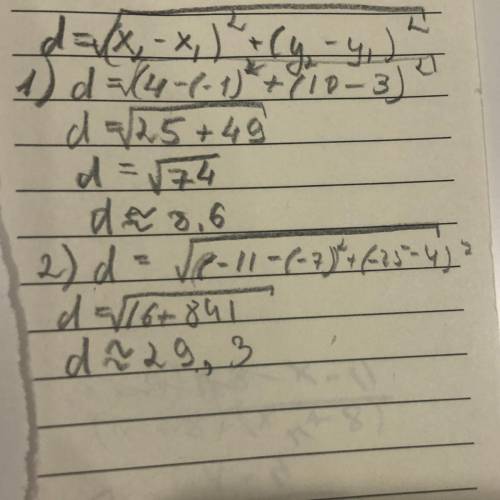 d=√(x₂-x₁)²+(y₂-y₁)²
1) d=√(4-(-1)²+(10-3)²
d=√25+49
d=√74
d≈8,6
2) d=√(-11-(-7)²+(-25-4)²
d=√16+841
d≈29,3